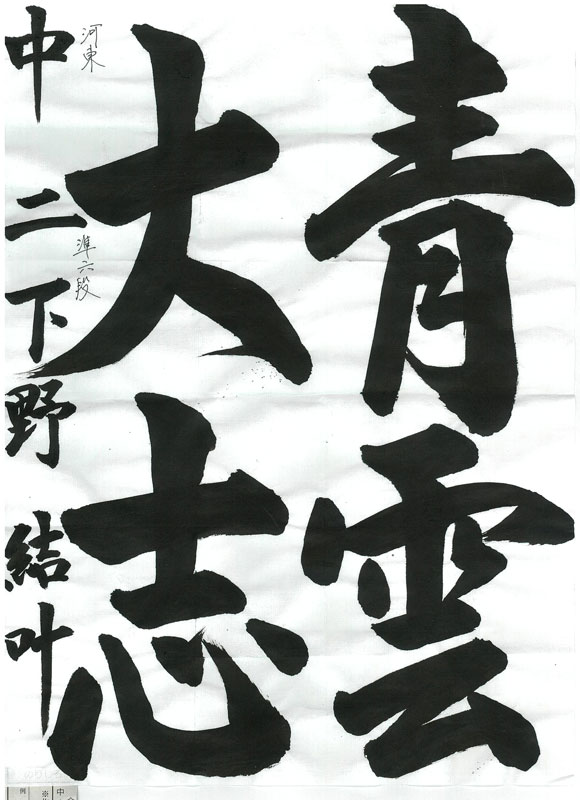 青雲
大志
河東
準六段
中二 下野 結叶